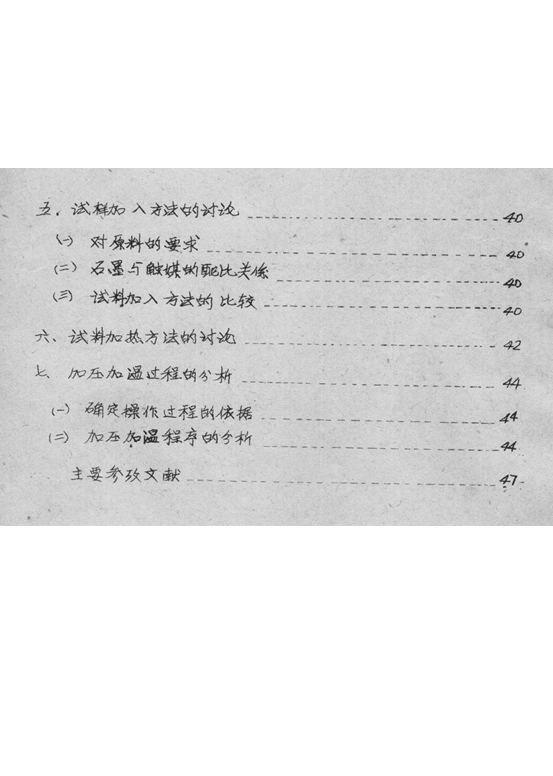 五、试样加入方法的讨论 40
(一) 对原料的要求 40
(二) 石墨与触媒的配比关係 40
(三) 试料加入方法的比较 40
六、试料加热方法的讨论 42
七、加压加温过程的分析 44
(一) 确定操作过程的依据 44
(二) 加压加温程序的分析 44
主要参攷文献 47